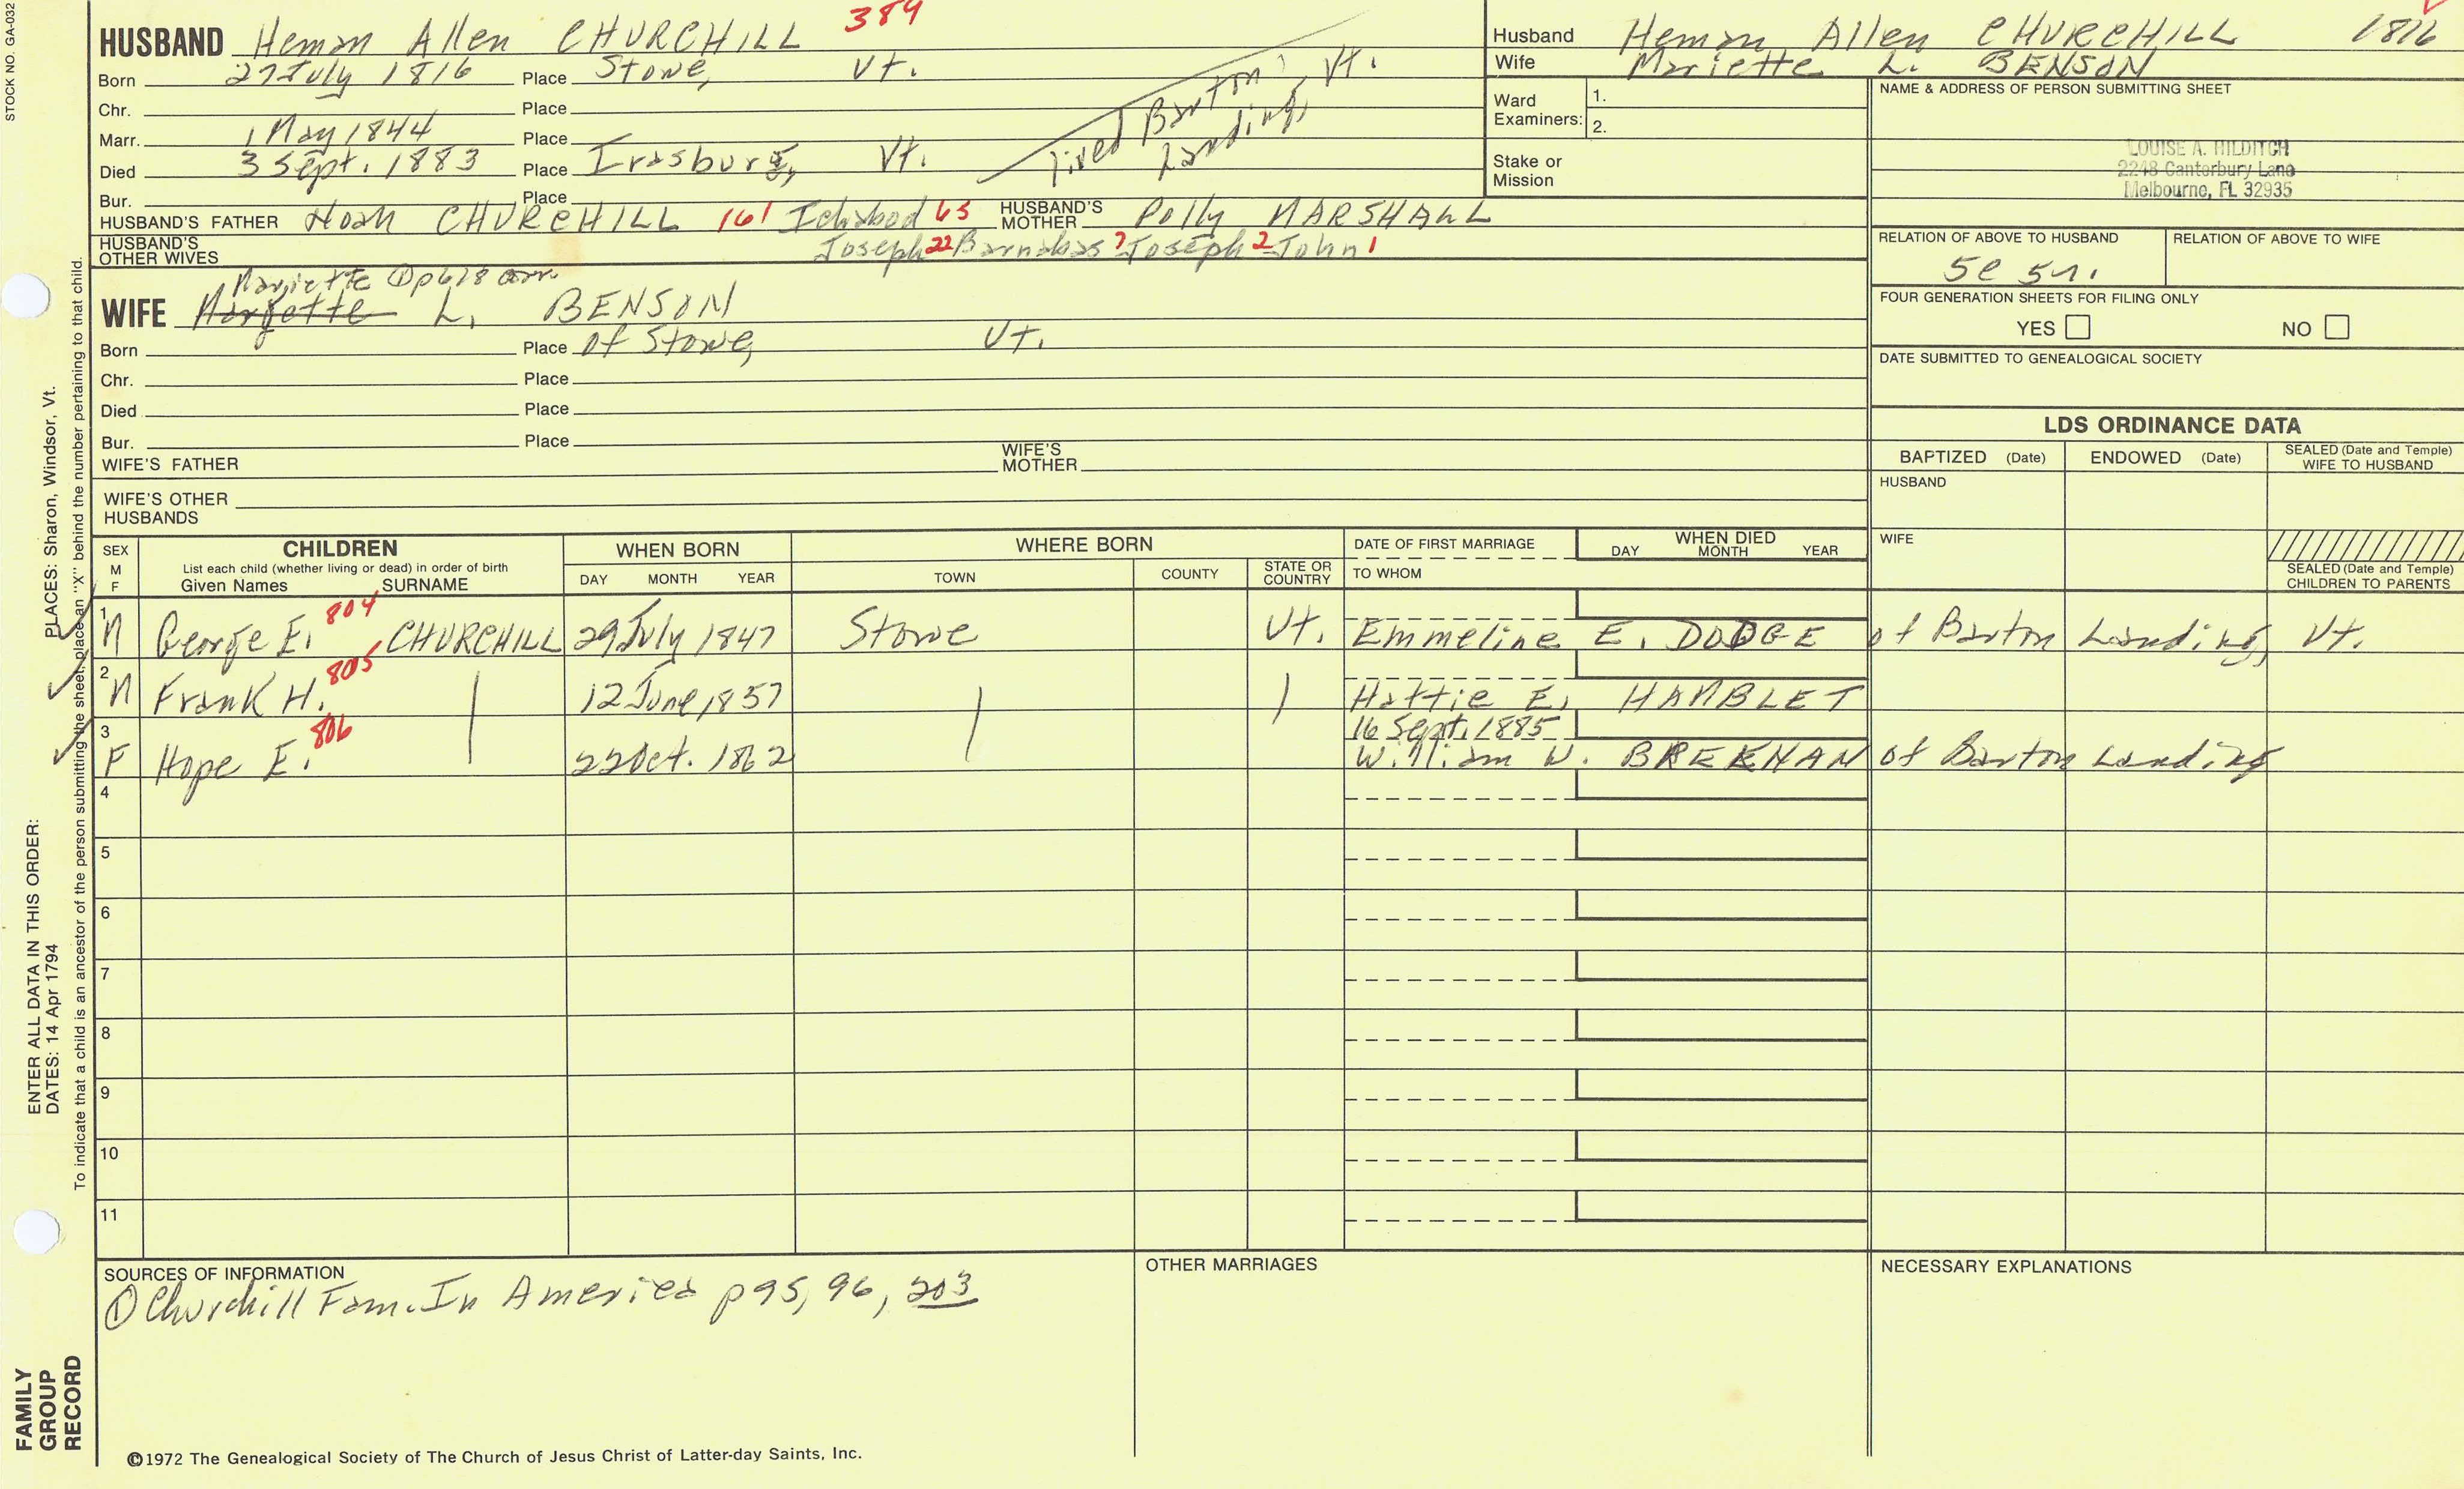 STOCK NO. GA-032
HUSBAND Heman Allen CHURCHILL 389
Born 27 July 1816 Place Stowe, Vt.
Chr. Place
Marr. 1 May 1844 Place
Died 3 Sept. 1883 Place Irasburg, Vt.
Lived Barton Landing, Vt.
Bur. Place
HUSBAND'S FATHER Noah CHURCHILL 161 Ichabod 65 HUSBAND'S MOTHER Polly MARSHALL
HUSBAND'S OTHER WIVES Joseph 22 Barnabas 7 Joseph 2 John 1
Mariette ① p 628 corr.
WIFE Marjette L. BENSON
Born Place of Stowe, Vt.
Chr. Place
Died Place
Bur. Place
WIFE'S FATHER WIFE'S MOTHER
WIFE'S OTHER HUSBANDS
Husband Heman Allen CHURCHILL 1816
Wife Mariette L. BENSON
Ward Examiners: 1.
2.
Stake or Mission
NAME & ADDRESS OF PERSON SUBMITTING SHEET
LOUISE A. HILDITCH
2248 Canterbury Lane
Melbourne, FL 32935
RELATION OF ABOVE TO HUSBAND RELATION OF ABOVE TO WIFE
FOUR GENERATION SHEETS FOR FILING ONLY
YES NO
DATE SUBMITTED TO GENEALOGICAL SOCIETY
LDS ORDINANCE DATA
BAPTIZED (Date) ENDOWED (Date) SEALED (Date and Temple) WIFE TO HUSBAND
HUSBAND
WIFE
SEALED (Date and Temple) CHILDREN TO PARENTS
SEX M F CHILDREN
List each child (whether living or dead) in order of birth
Given Names SURNAME
WHEN BORN
DAY MONTH YEAR
WHERE BORN
TOWN COUNTY STATE OR COUNTRY
DATE OF FIRST MARRIAGE
TO WHOM
WHEN DIED
DAY MONTH YEAR
1 M George E. 804 CHURCHILL 29 July 1847 Stowe Vt. Emmeline E. DODGE of Barton Landing, Vt.
2 M Frank H. 805 12 June 1857 Hattie E. HAMBLET
3 F Hope E. 806 22 Oct. 1862 16 Sept. 1885
William W. BREENAN of Barton Landing
4
5
6
7
8
9
10
11
SOURCES OF INFORMATION
① Churchill Fam. In America p 95, 96, 203
OTHER MARRIAGES
NECESSARY EXPLANATIONS
©1972 The Genealogical Society of The Church of Jesus Christ of Latter-day Saints, Inc.
FAMILY GROUP RECORD
ENTER ALL DATA IN THIS ORDER:
DATES: 14 Apr 1794 PLACES: Sharon, Windsor, Vt.
To indicate that a child is an ancestor of the person submitting the sheet, place an "X" behind the number pertaining to that child.